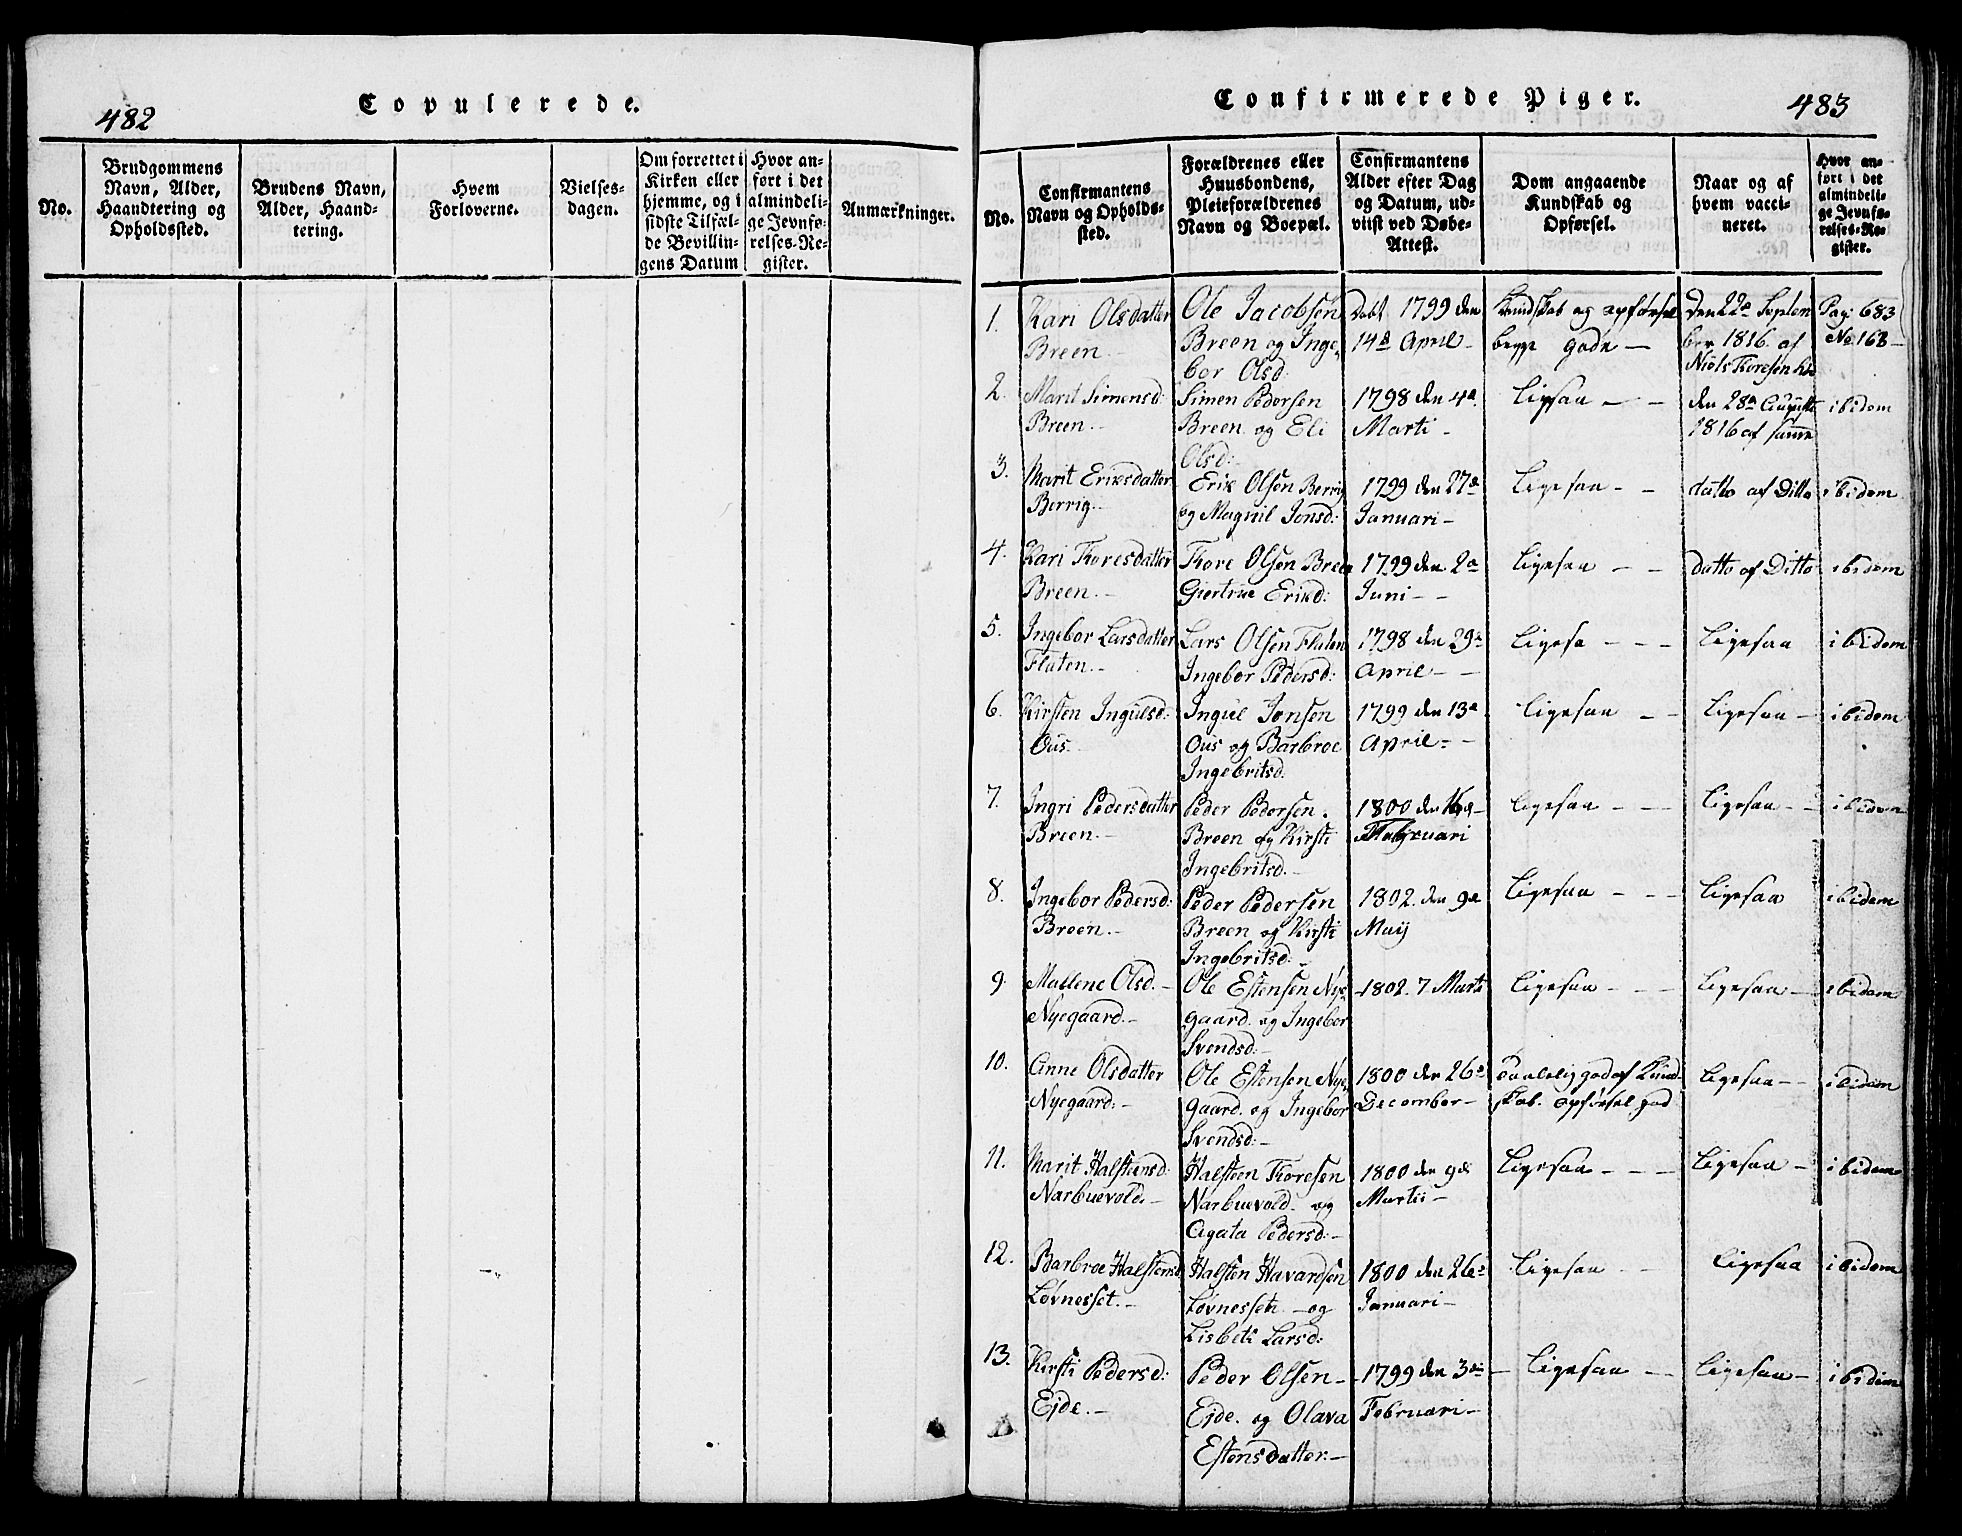 482
Copulerede.
No.
Brudgommens
Navn, Alder,
Haandtering og
Opholdssted.
Brudens Navn,
Alder, Haand-
tering.
Hvem
Forloverne.
Vielses-
dagen.
Om forrettet i
Kirken eller
hjemme, og i
sidste Tilfæl-
de Bevillin-
gens Datum
Hvor an-
ført i det
almindeli-
ge Jevnfø-
relses-Re-
gister.
Anmærkninger.
Confirmerede Piger.
483
No.
Confirmantens
Navn og Opholds-
sted.
Forældrenes eller
Huusbondens,
Pleieforældrenes
Navn og Boepæl.
Confirmantens
Alder efter Dag
og Datum, ud-
viist ved Døbe-
Attest.
Dom angaaende
Kundskab og
Opførsel.
Naar og af
hvem vacci-
neret.
Hvor an-
ført i det
almindeli-
ge Jevnfø-
relses-Re-
gister.
1.
Kari Olsdatter
Breen.
Ole Jacobsen
Breen og Inge-
bor Olsd:
Døbt 1799 den
14d April
Kundskab og opførsel
begge gode
Den 22de Septem
ber 1816 af
Niels Thoresen
Pag: 683
No 163
2.
Marit Simensd:
Breen.
Simen Pedersen
Breen og Eli
Olsd:
1798 den 4de
Marti
Ligesaa
den 28de Augusti
1816 af samme
ibidem
3.
Marit Eriksdatter
Berrig.
Erik Olsen Berrig
og Magnil Jonsd:
1799 den 27de
Januari
Ligesaa
datto af Ditto
ibidem
4.
Kari Thoresdatter
Breen.
Thore Olsen Breen
Giertrue Eriksd:
1799 den 2de
Juni
Ligesaa
datto af Ditto
ibidem
5.
Ingebor Larsdatter
Flaten.
Lars Olsen Flaten
Ingebor Pedersd:
1798 den 29de
April
Ligesa
Ligesaa
ibidem
6.
Kirsten Ingulsd:
Ous.
Ingul Jonsen
Ous og Barbroe
Ingebritsd.
1799 den 13de
April
Ligesaa
Ligesaa
ibidem
7.
Ingri Pedersdatter
Breen.
Peder Pedersen
Breen og Kirsti
Ingebritsd.
1800 den 16de
Februari
Ligesaa
Ligesaa
ibidem
8.
Ingebor Pedersd:
Breen.
Peder Pedersen
Breen og Kirsti
Ingebritsd:
1802. den 9de
Maij
Ligesaa
Ligesaa
ibidem
9.
Mallene Olsd.
Nyegaard.
Ole Estensen Nye-
gaard. og Ingebor
Svendsd:
1802. 7 Marti
Ligesaa
Ligesaa
ibidem
10.
Anne Olsdatter
Nyegaard:
Ole Estensen Nye-
gaard. og Ingebor
Svendsd:
1800 den 26de
December
Taalelig god af Kund-
skab. opførsel god
Ligesaa
ibidem
11.
Marit Halstensd:
Narbuevold.
Halsteen Thoresen
Narbuevold. og
Agata Pedersd:
1800 den 9de
Martii
Ligesaa
Ligesaa
ibidem
12.
Barbroe Halstensd:
Løvnesset.
Halsten Havardsen
Løvnesset. og
Lisbeth Larsd:
1800 den 26de
Januari
Ligesaa
Ligesaa
ibidem
13.
Kirsti Pedersd:
Eide.
Peder Olsen
Eide. og Olava
Estensdatter:
1799 den 3die
Februari
Ligesaa
Ligesaa
ibidem